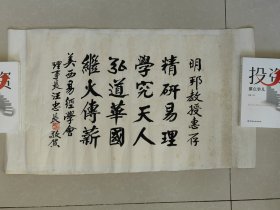 明邦教授惠存
精研易理
學究天人
弘道華國
繼火傳薪
美西易經學會
理事長汪忠長敬賀
投资